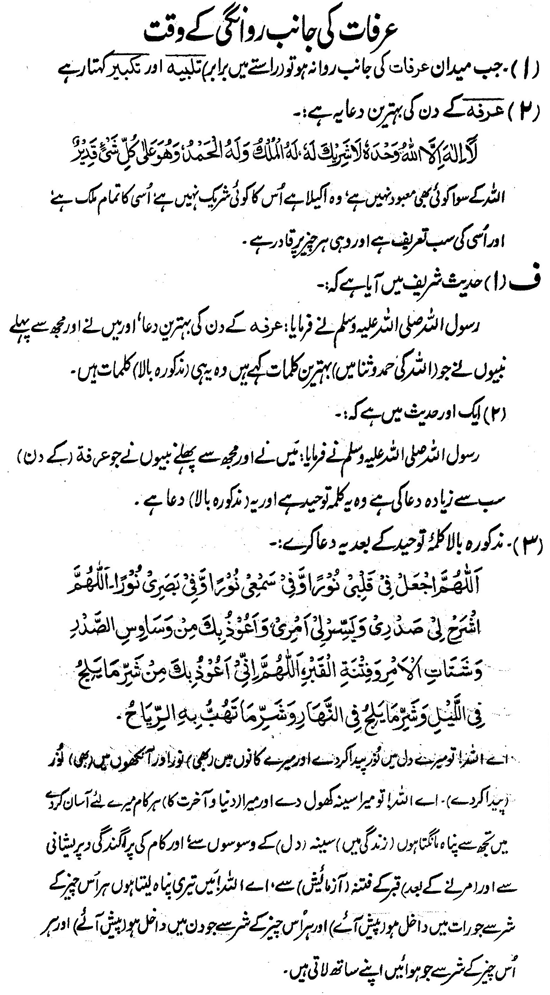 عرفات کی جانب روانگی کے وقت
(۱)۔ جب میدان عرفات کی جانب روانہ ہو تو (راستے میں برابر) تلبیہ اور تکبیر کہتا رہے
(۲) عرفہ کے دن کی بہترین دعا یہ ہے:۔
لَا اِلٰهَ اِلَّا اللّٰهُ وَحْدَهٗ لَا شَرِيْكَ لَهٗ، لَهُ الْمُلْكُ وَلَهُ الْحَمْدُ، وَهُوَ عَلٰى كُلِّ شَيْءٍ قَدِيْرٌ
اللہ کے سوا کوئی بھی معبود نہیں ہے، وہ اکیلا ہے اُس کا کوئی شریک نہیں ہے، اُسی کا تمام ملک ہے
اور اُسی کی سب تعریف ہے اور وہی ہر چیز پر قادر ہے۔
ف (۱) حدیث شریف میں آیا ہے کہ:۔
رسول اللہ صلی اللہ علیہ وسلم نے فرمایا: عرفہ کے دن کی بہترین دعا، اور میں نے اور مجھ سے پہلے
نبیوں نے جو (اللہ کی حمد و ثنا میں) بہترین کلمات کہے ہیں وہ یہی (مذکورہ بالا) کلمات ہیں۔
(۲) ایک اور حدیث میں ہے کہ:۔
رسول اللہ صلی اللہ علیہ وسلم نے فرمایا: میں نے اور مجھ سے پہلے نبیوں نے جو عرفۃ (کے دن)
سب سے زیادہ دعا کی ہے وہ یہ کلمہ توحید ہے اور یہ (مذکورہ بالا) دعا ہے۔
(۳)۔ مذکورہ بالا کلمۂ توحید کے بعد یہ دعا کرے:۔
اَللّٰهُمَّ اجْعَلْ فِيْ قَلْبِيْ نُوْرًا وَّفِيْ سَمْعِيْ نُوْرًا وَّفِيْ بَصَرِيْ نُوْرًا۔ اَللّٰهُمَّ
اشْرَحْ لِيْ صَدْرِيْ وَيَسِّرْ لِيْ اَمْرِيْ، وَاَعُوْذُ بِكَ مِنْ وَسَاوِسِ الصَّدْرِ
وَشَتَاتِ الْاَمْرِ وَفِتْنَةِ الْقَبْرِ، اَللّٰهُمَّ اِنِّيْ اَعُوْذُ بِكَ مِنْ شَرِّ مَا يَلِجُ
فِي اللَّيْلِ وَشَرِّ مَا يَلِجُ فِي النَّهَارِ وَشَرِّ مَا تَهُبُّ بِهِ الرِّيَاحُ۔
اے اللہ! تو میرے دل میں نُور پیدا کر دے اور میرے کانوں میں (بھی) نور اور آنکھوں میں (بھی) نُور
(پیدا کر دے)۔ اے اللہ! تو میرا سینہ کھول دے اور میرا (دنیا و آخرت کا) ہر کام میرے لئے آسان کر دے
میں تجھ سے پناہ مانگتا ہوں (زندگی میں) سینہ (دل) کے وسوسوں سے، اور کام کی پراگندگی و پریشانی
سے اور (مرنے کے بعد) قبر کے فتنہ (آزمائش) سے، اے اللہ! میں تیری پناہ لیتا ہوں ہر اُس چیز کے
شر سے جو رات میں داخل ہو (پیش آئے) اور ہر اُس چیز کے شر سے جو دن میں داخل ہو (پیش آئے) اور ہر
اُس چیز کے شر سے جو ہوائیں اپنے ساتھ لاتی ہیں۔